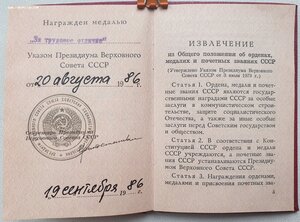 Награжден медалью
„За трудовое отличие"
Указом Президиума Верховного
Совета СССР
от 20 августа 1986 г.
Секретарь Президиума
Верховного Совета СССР
19 сентября 1986 г.
ИЗВЛЕЧЕНИЕ
из Общего положения об орденах,
медалях и почетных званиях СССР
(Утверждено Указом Президиума Верховного
Совета СССР от 3 июля 1979 г.)
Статья 1. Ордена, медали и почет-
ные звания СССР являются
государственными наградами СССР за особые
заслуги в коммунистическом строи-
тельстве, защите социалистического
Отечества, а также за иные особые
заслуги перед Советским государством
и обществом.
Статья 2. В соответствии с Кон-
ституцией СССР, ордена и медали
СССР учреждаются, а почетные зва-
ния СССР устанавливаются Президиу-
мом Верховного Совета СССР.
Статья 3. Награждения орденами,
медалями и присвоение почетных зва-